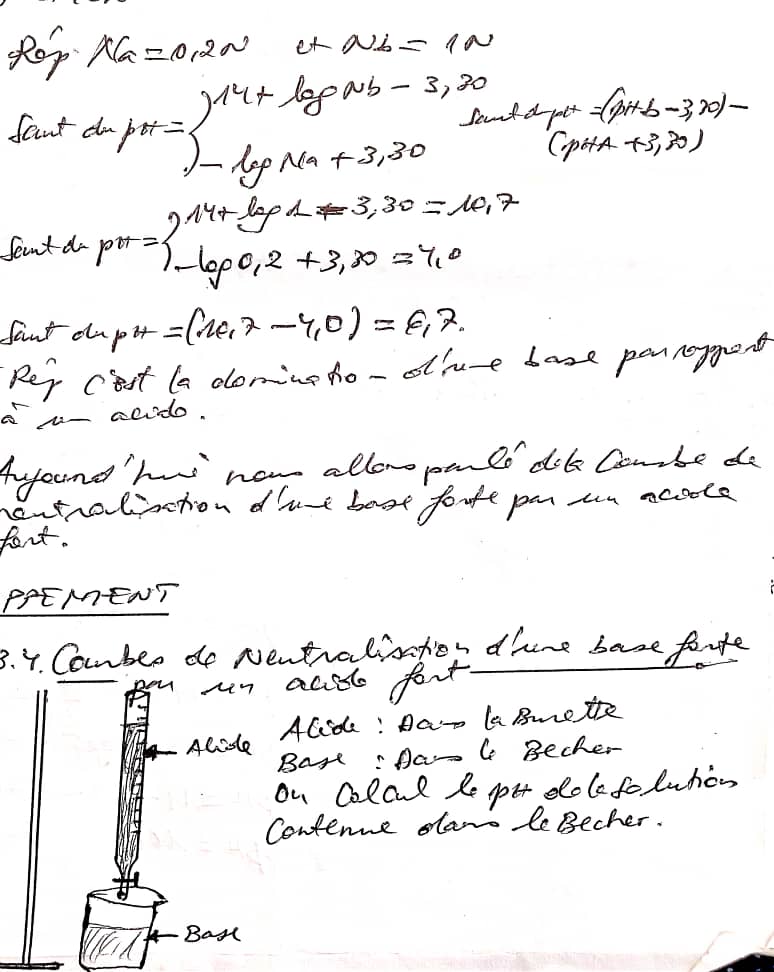 Rép. Na = 0,2N et Nb = 1N
Saut du pH = { 14 + log Nb - 3,30
Saut du pH = (pHb - 3,30) -
(pHA + 3,30)
- log Na + 3,30
Saut du pH = { 14 + log 1 - 3,30 = 10,7
- log 0,2 + 3,30 = 4,0
Saut du pH = (10,7 - 4,0) = 6,7.
Rép C'est la dominatio - d'une base par rapport
à un acide.
Aujourd'hui nous allons parlé de la Courbe de
neutralisation d'une base forte par un acide
fort.
PPEMENT
3.4. Courbes de Neutralisation d'une base forte
par un acide fort
Acide
Acide : Dans la Burette
Base : Dans le Becher
On Calcul le pH de la solution
Contenue dans le Becher.
Base